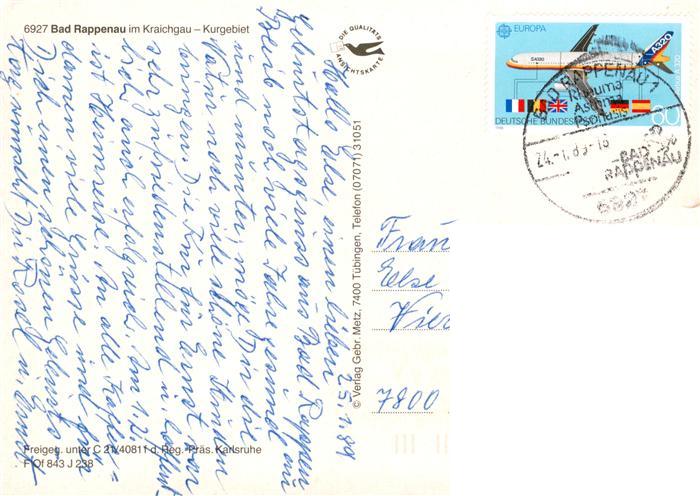 6927 Bad Rappenau im Kraichgau – Kurgebiet
DIE QUALITÄTS
ANSICHTSKARTE
EUROPA
A320
DEUTSCHE BUNDESPOST
80
BAD RAPPENAU 1
Rheuma
Asthma
Psoriasis
24.-1.89-16
BAD
RAPPENAU
6927
25.1.89
Hallo Else, einen lieben
Geburtstagsgruss aus Bad Rappenau
Bleib noch viele Jahre gesund
und munter, möge Dir die
Natur noch viele schöne Stunden
bringen. Die Kur für Ernst war
sehr zufriedenstellend u. hoffent-
lich auch erfolgreich. Am 1.2.
ist Heimreise. An alle Kaffee-
damen viele Grüsse und für
Dich einen schönen Geburts-
tag wünscht Dir Rosel u. Ernst
© Verlag Gebr. Metz, 7400 Tübingen, Telefon (07071) 31051
Frau
Else
7800
Freigeg. unter C 21/40811 d. Reg.-Präs. Karlsruhe
F Of 843 J 238